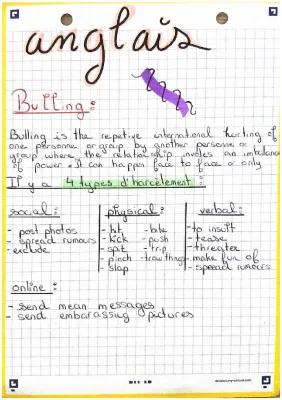 anglais
Bulling:
Bulling is the repetive international hurting of
one personne or group by another personne or
group where the relationship involves an imbalance
of power. It can happen face to face or only
Il y a 4 types d'harcèlement:
social: physical: verbal:
- post photos - hit - bite - to insult
- spread rumours - kick - push - tease
- exclude - spit - trip - threater
- pinch - trow things - make fun of
- slap - spread rumours
online:
- send mean messages
- send embarassing pictures